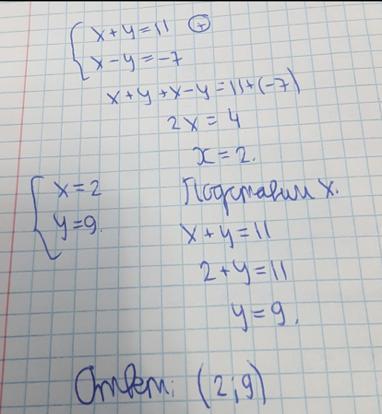 x+y=11 ⊕
x-y=-7
x+y+x-y=11+(-7)
2x=4
x=2.
x=2
y=9.
Подставим x.
x+y=11
2+y=11
y=9.
Ответ: (2;9)